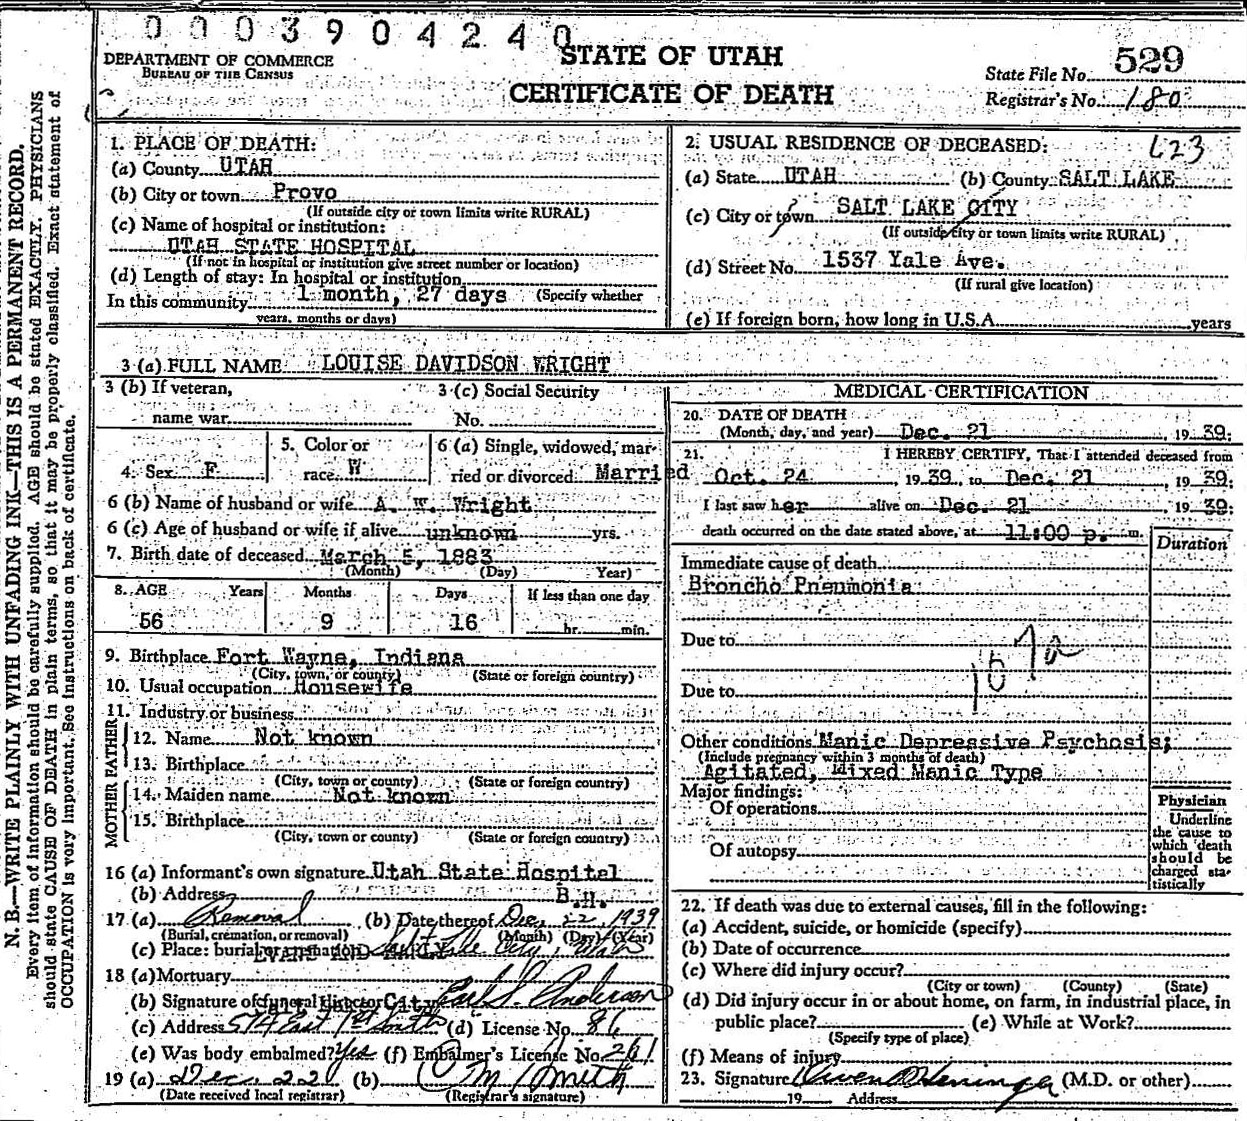 0003904240
DEPARTMENT OF COMMERCE
BUREAU OF THE CENSUS
STATE OF UTAH
CERTIFICATE OF DEATH
State File No. 529
Registrar's No. 180
N. B.—WRITE PLAINLY WITH UNFADING INK—THIS IS A PERMANENT RECORD.
Every item of information should be carefully supplied. AGE should be stated EXACTLY. PHYSICIANS
should state CAUSE OF DEATH in plain terms, so that it may be properly classified. Exact statement of
OCCUPATION is very important. See instructions on back of certificate.
1. PLACE OF DEATH:
(a) County UTAH
(b) City or town Provo
(If outside city or town limits write RURAL)
(c) Name of hospital or institution:
UTAH STATE HOSPITAL
(If not in hospital or institution give street number or location)
(d) Length of stay: In hospital or institution
In this community 1 month, 27 days (Specify whether
years, months or days)
2. USUAL RESIDENCE OF DECEASED: L23
(a) State UTAH (b) County SALT LAKE
(c) City or town SALT LAKE CITY
(If outside city or town limits write RURAL)
(d) Street No. 1537 Yale Ave.
(If rural give location)
(e) If foreign born, how long in U.S.A. years
3 (a) FULL NAME LOUISE DAVIDSON WRIGHT
3 (b) If veteran,
name war
3 (c) Social Security
No.
4. Sex F
5. Color or
race W
6 (a) Single, widowed, mar-
ried or divorced Married
6 (b) Name of husband or wife A. W. Wright
6 (c) Age of husband or wife if alive unknown yrs.
7. Birth date of deceased March 5, 1883
(Month) (Day) Year)
8. AGE Years Months Days If less than one day
56 9 16 hr. min.
9. Birthplace Fort Wayne, Indiana
(City, town, or county) (State or foreign country)
10. Usual occupation Housewife
11. Industry or business
FATHER
12. Name Not known
13. Birthplace
(City, town or county) (State or foreign country)
MOTHER
14. Maiden name Not known
15. Birthplace
(City, town or county) (State or foreign country)
16 (a) Informant's own signature Utah State Hospital
(b) Address B.H.
17 (a) Removal (b) Date thereof Dec. 22 1939
(Burial, cremation, or removal) (Month) (Day) (Year)
(c) Place: burial or cremation Salt Lake City, Utah
18 (a) Mortuary
(b) Signature of funeral director City Earl S. Anderson
(c) Address 574 East 1st South (d) License No. 86
(e) Was body embalmed? Yes (f) Embalmer's License No. 261
19 (a) Dec. 22 (b) C M Smith
(Date received local registrar) (Registrar's signature)
MEDICAL CERTIFICATION
20. DATE OF DEATH
(Month, day, and year) Dec. 21, 19 39.
21. I HEREBY CERTIFY, That I attended deceased from
Oct. 24, 19 39, to Dec. 21, 19 39.
I last saw her alive on Dec. 21, 19 39.
death occurred on the date stated above, at 11:00 p. m.
Duration
Immediate cause of death
Broncho Pneumonia
Due to
107a
Due to
Other conditions Manic Depressive Psychosis;
(Include pregnancy within 3 months of death)
Agitated, Mixed Manic Type
Major findings:
Of operations
Of autopsy
Physician
Underline
the cause to
which death
should be
charged sta-
tistically
22. If death was due to external causes, fill in the following:
(a) Accident, suicide, or homicide (specify)
(b) Date of occurrence
(c) Where did injury occur?
(City or town) (County) (State)
(d) Did injury occur in or about home, on farm, in industrial place, in
public place? (e) While at Work?
(Specify type of place)
(f) Means of injury
23. Signature Owen (M.D. or other)
19 Address